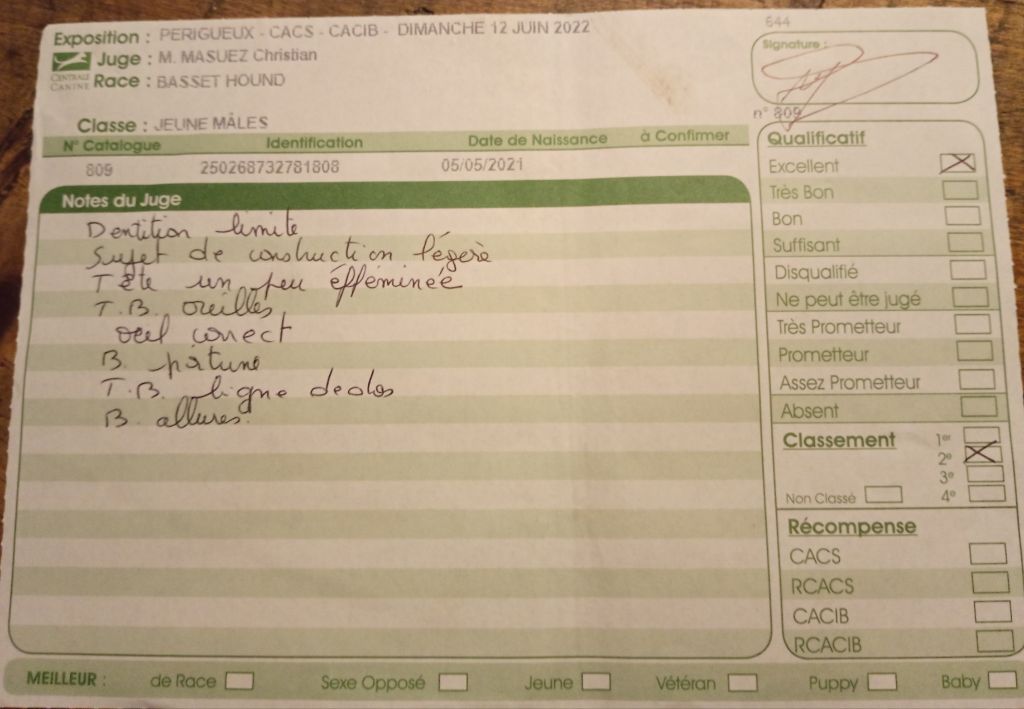 Exposition : PERIGUEUX - CACS - CACIB - DIMANCHE 12 JUIN 2022
Juge : M. MASUEZ Christian
CENTRALE CANINE
Race : BASSET HOUND
Classe : JEUNE MÂLES
N° Catalogue Identification Date de Naissance à Confirmer
809 250268732781808 05/05/2021
Notes du Juge
Dentition limite
Sujet de construction légère
Tête un peu éfféminée
T.B. oreilles
oeil correct
B. poitrine
T.B. ligne de dos
B. allures.
644
Signature :
n° 809
Qualificatif
Excellent
Très Bon
Bon
Suffisant
Disqualifié
Ne peut être jugé
Très Prometteur
Prometteur
Assez Prometteur
Absent
Classement 1er
2e
3e
Non Classé 4e
Récompense
CACS
RCACS
CACIB
RCACIB
MEILLEUR : de Race Sexe Opposé Jeune Vétéran Puppy Baby